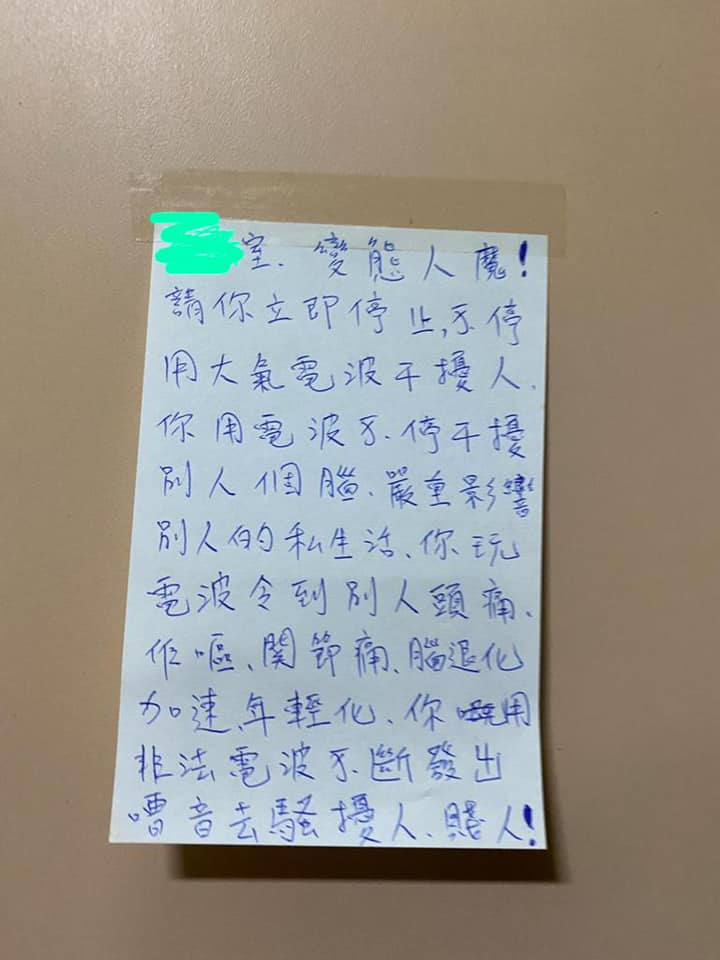 室. 變態人魔!
請你立即停止,不停
用大氣電波干擾人.
你用電波不.停干擾
別人個腦、嚴重影響
別人的私生活、你玩
電波令到別人頭痛、
作嘔、關節痛、腦退化
加速、年輕化、你用
非法電波不.斷發出
嘈音去騷擾人、賤人!